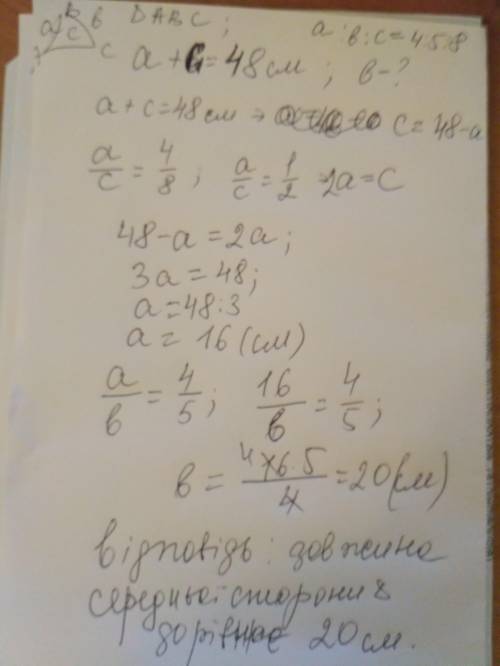 a B в с
с
DABC ;
a : в : с = 4:5:8
a + с = 48 см ; в - ?
a + c = 48 см → c = 48 - a
a/c = 4/8 ; a/c = 1/2 2a = C
48 - a = 2a ;
3a = 48;
a = 48:3
a = 16 (см)
a/в = 4/5 ; 16/в = 4/5 ;
в = 16·5/4 = 20 (см)
Відповідь: довжина
середньої сторони
дорівнює 20 см.